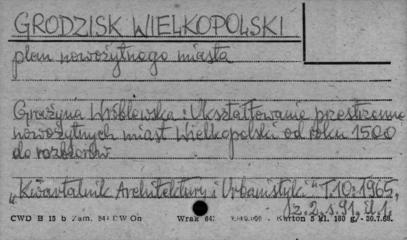 GRODZISK WIELKOPOLSKI
plan nowożytnego miasta
Grażyna Wróblewska: Ukształtowanie przestrzenne
nowożytnych miast Wielkopolski od roku 1500
do rozbiorów
"Kwartalnik Architektury i Urbanistyki" T.10: 1965,
z. 2, s. 91, il. 1.
CWD B 15 b Zam. 841 CW On Wrak 841 Karton 5 kl. 180 g/ - 30.7.68.